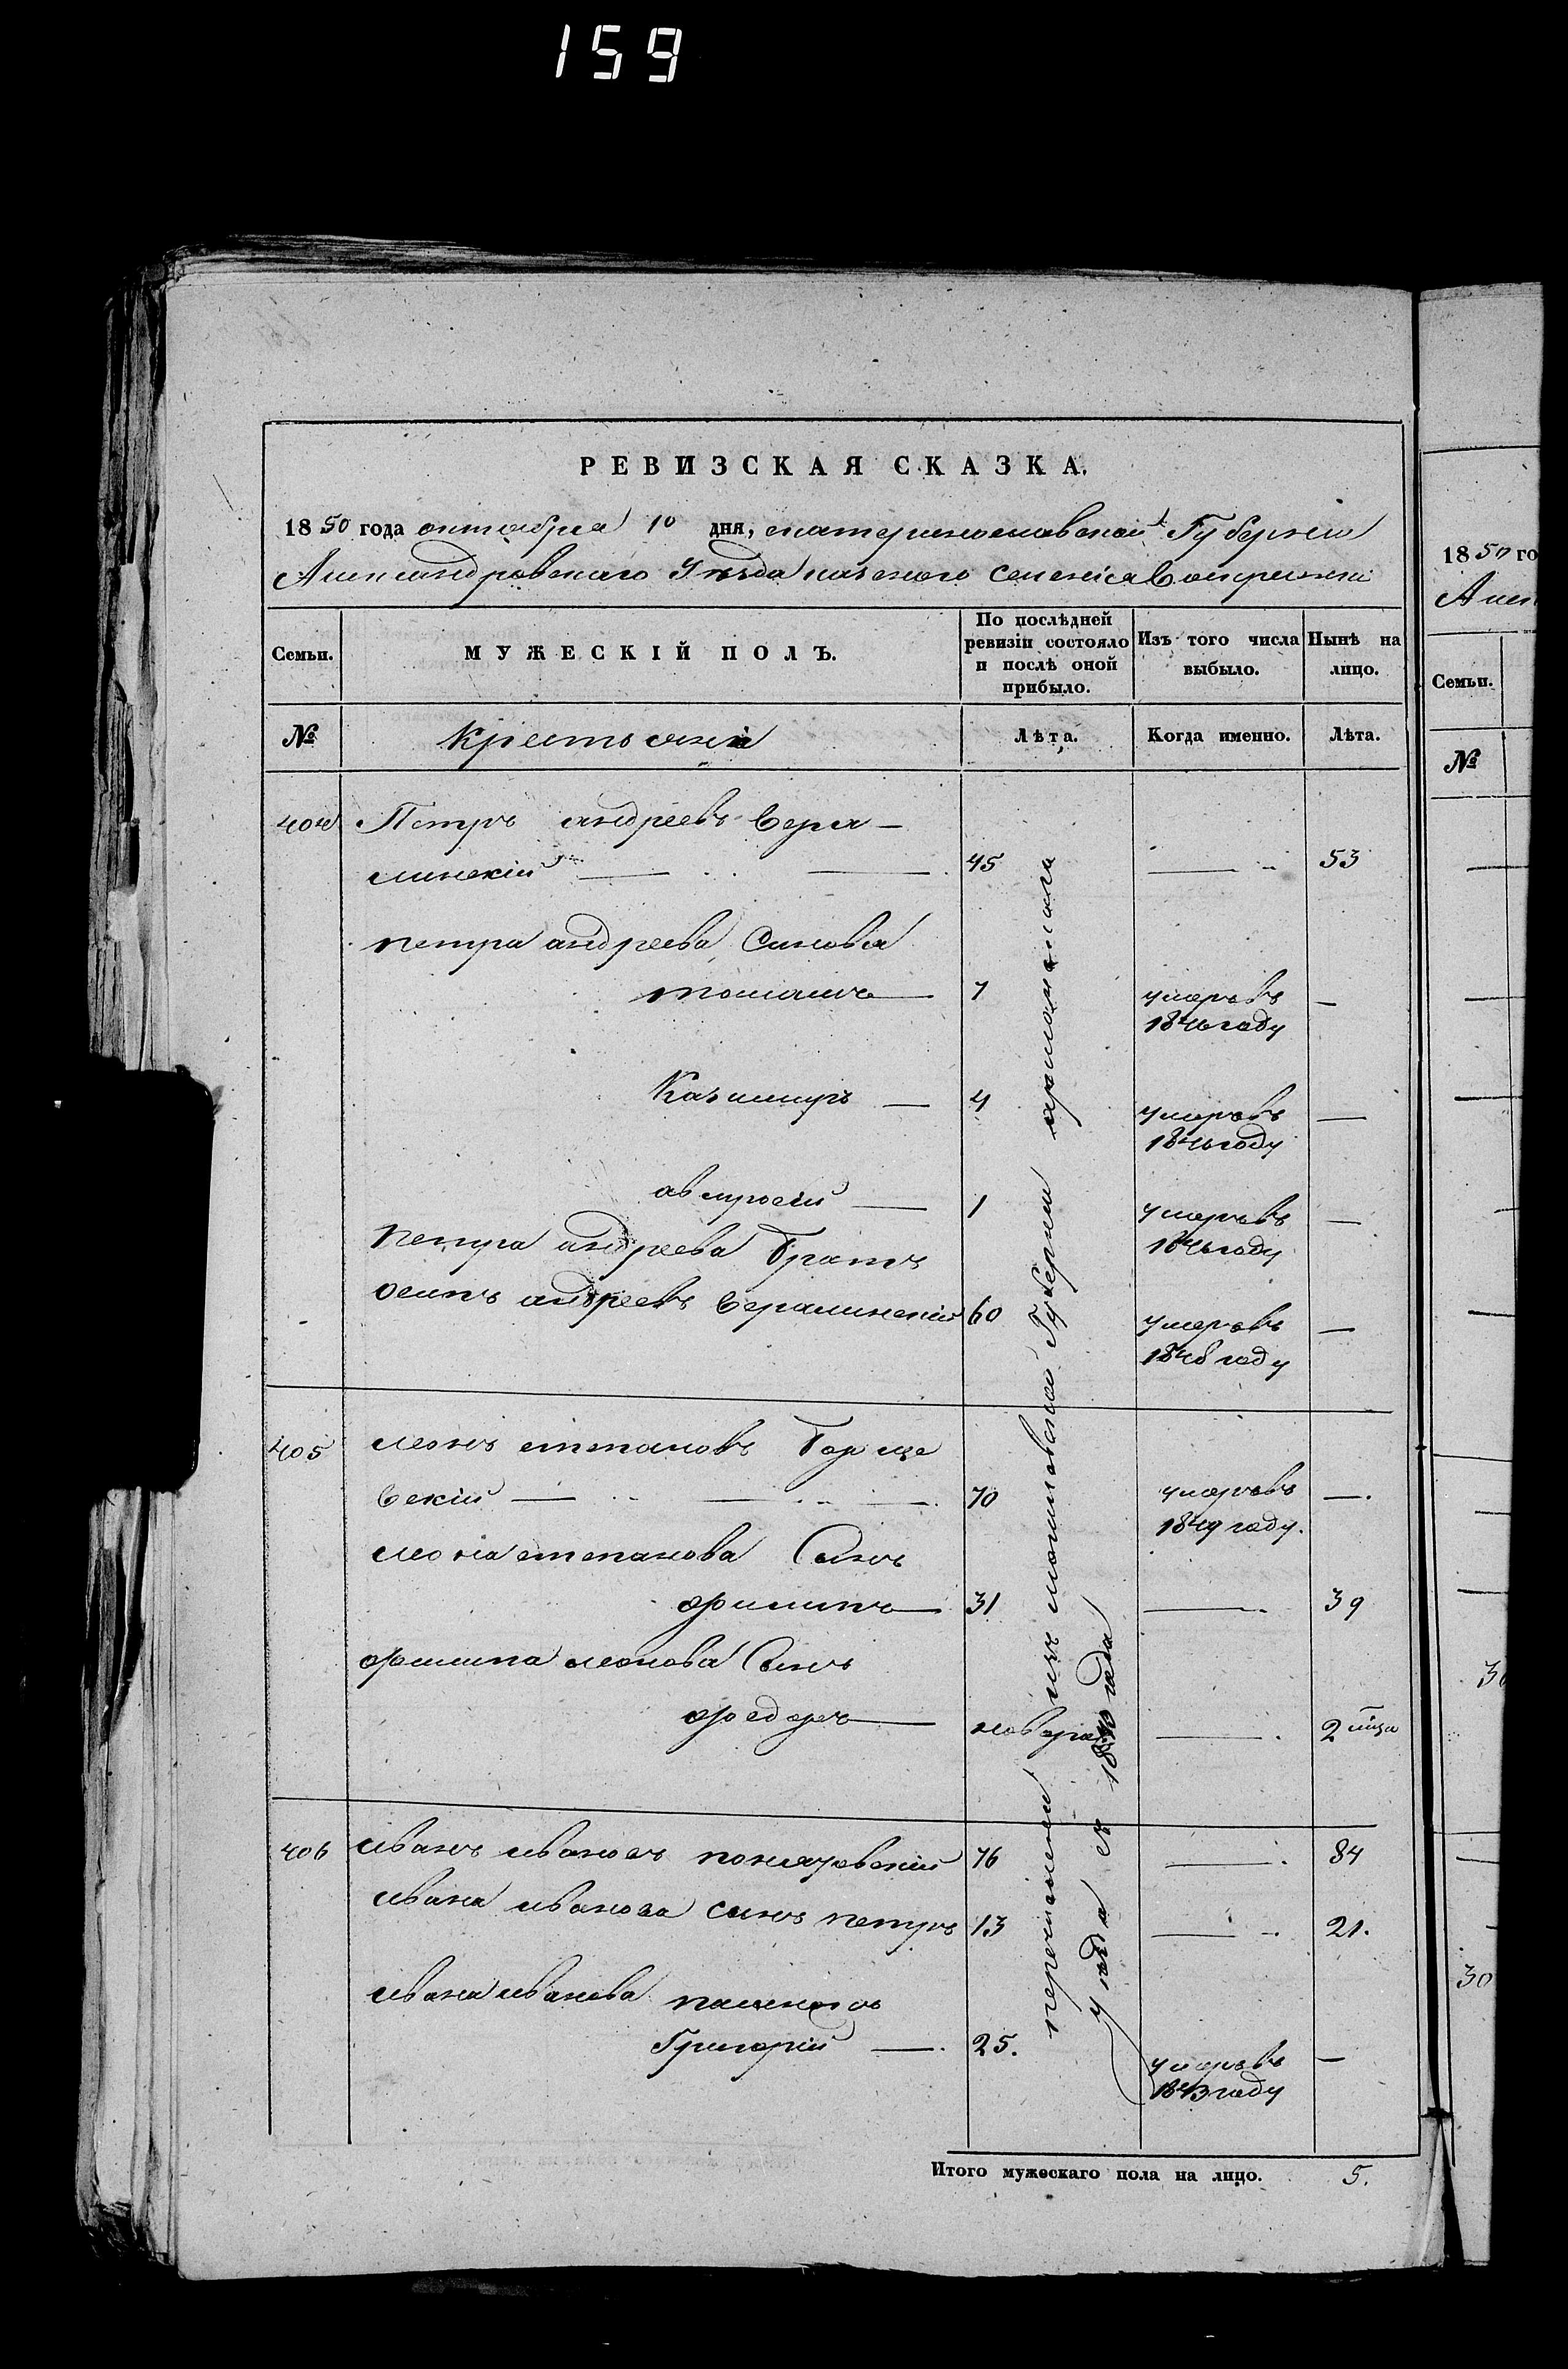 159
РЕВИЗСКАЯ СКАЗКА.
1850 года октября 10 дня, екатеринославской Губернiи
Александровскаго Уѣзда казеннаго селенiя Воскресенки
Семьи.
МУЖЕСКIЙ ПОЛЪ.
По послѣдней ревизiи состояло и послѣ оной прибыло.
Изъ того числа выбыло.
Нынѣ на лицо.
№
Крестьяне
Лѣта.
Когда именно.
Лѣта.
404 Петръ андреевъ Вера-
линскiй 45 — 53
петра андреева Синовья
томашъ — 7 умеръ въ —
1846 году
Казимиръ — 4 умеръ въ —
1846 году
амвросiй — 1 умеръ въ —
1846 году
Петра андреева Братъ
осипъ андреевъ Вералинскiй 60 умеръ въ —
1848 году
405 леонъ степановъ Борще
вскiй — 70 умеръ въ —.
1849 году.
леона степанова Сынъ
филипъ — 31 — 39
филипа леонова Сынъ
федоръ — новорож — 2 мца
406 иванъ ивановъ понятовскiй 76 — 84
ивана иванова сынъ петръ 13 — 21.
ивана иванова
Григорiй — 25. умеръ въ —
1843 году
перечислены изъ могилевской Губернiи
уѣзда съ 1840 года
Итого мужескаго пола на лицо. 5.
1850 го
Алек
Семьи.
№
30